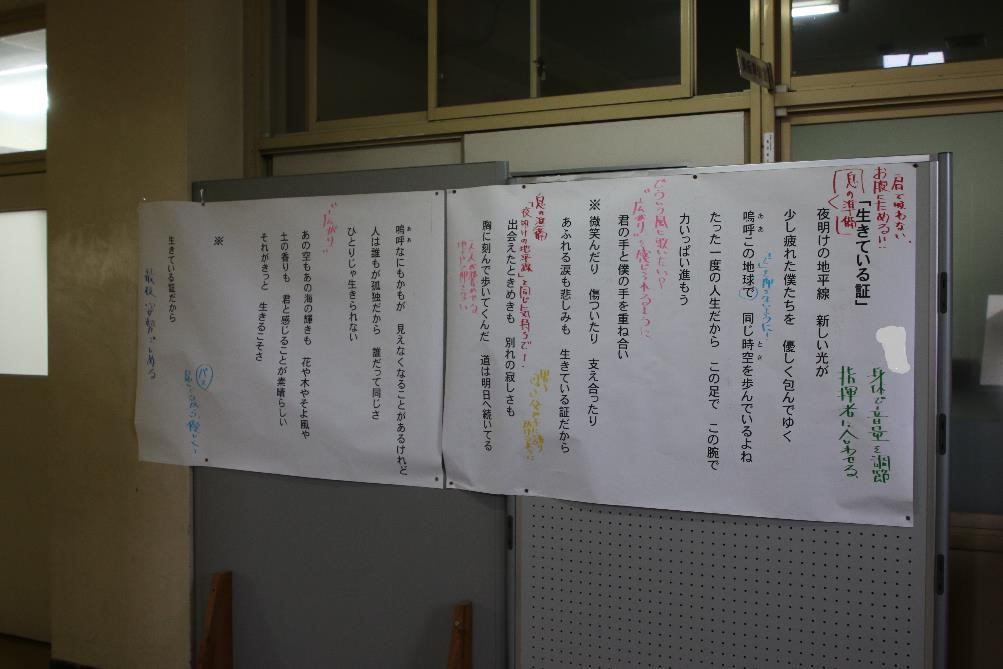 肩で吸わない
お腹にためる!!
息の準備
「生きている証」
身体で音量を調節
指揮者に合わせる
夜明けの地平線　新しい光が
少し疲れた僕たちを　優しく包んでゆく
嗚呼この地球で　同じ時空を歩んでいるよね
ああ
とき
たった一度の人生だから　この足で　この腕で
力いっぱい進もう
どういう風に歌いたい?
"広がり"を感じられるように
君の手と僕の手を重ね合い
※微笑んだり　傷ついたり　支え合ったり
あふれる涙も悲しみも　生きている証だから
息の準備
「夜明けの地平線」と同じ気持ちで!
出会えたときめきも　別れの寂しさも
胸に刻んで歩いてくんだ　道は明日へ続いてる
嗚呼なにもかもが　見えなくなることがあるけれど
ああ
人は誰もが孤独だから　誰だって同じさ
ひとりじゃ生きられない
"広がり"
あの空もあの海の輝きも　花や木やそよ風や
土の香りも　君と感じることが素晴らしい
それがきっと　生きるこそさ
※
バス
生きている証だから